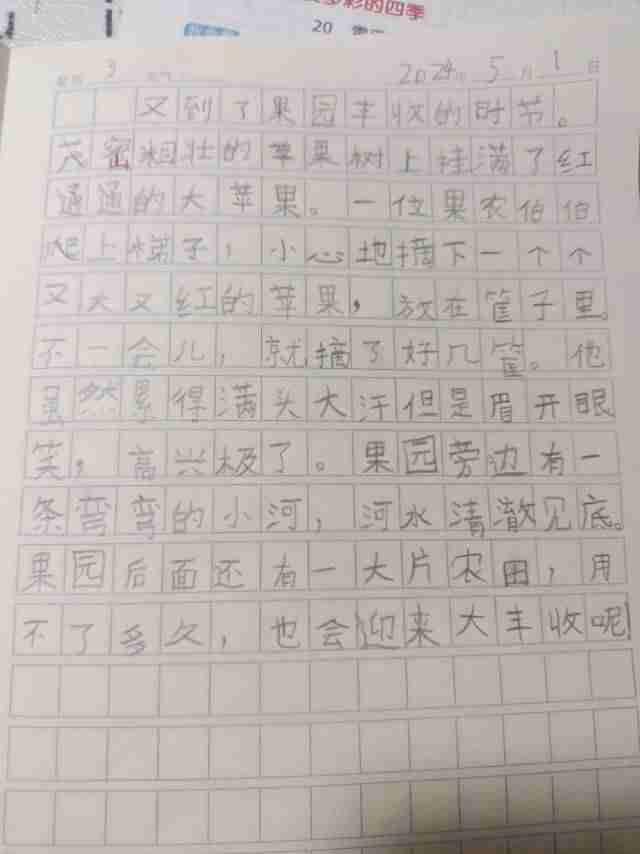 多彩的四季
20
3
2024年 5月 1日
又到了果园丰收的时节。
茂密粗壮的苹果树上挂满了红
通通的大苹果。一位果农伯伯
爬上梯子，小心地摘下一个个
又大又红的苹果，放在筐子里。
不一会儿，就摘了好几筐。他
虽然累得满头大汗但是眉开眼
笑，高兴极了。果园旁边有一
条弯弯的小河，河水清澈见底。
果园后面还有一大片农田，用
不了多久，也会迎来大丰收呢!